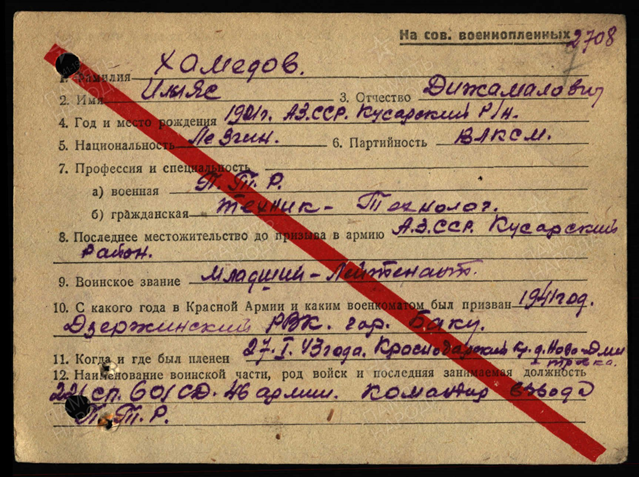 На сов. военнопленных 2708
1. Фамилия Хамедов.
2. Имя Ильяс 3. Отчество Дижамалович
4. Год и место рождения 1921г. АЗ.ССР. Кусарский Р/Н.
5. Национальность Лезгин. 6. Партийность ВЛКСМ.
7. Профессия и специальность
а) военная П.Т.Р.
б) гражданская техник-Технолог.
8. Последнее местожительство до призыва в армию АЗ.ССР. Кусарский
Район.
9. Воинское звание Младший-Лейтенант.
10. С какого года в Красной Армии и каким военкоматом был призван 1941год.
Дзержинский РВК. гор. Баку.
11. Когда и где был пленен 27.I.43года. Краснодарский Кр. д. Ново-Дми
12. Наименование воинской части, род войск и последняя занимаемая должность
СП. 60/СД. 46 армии. командир взвода
П.Т.Р.